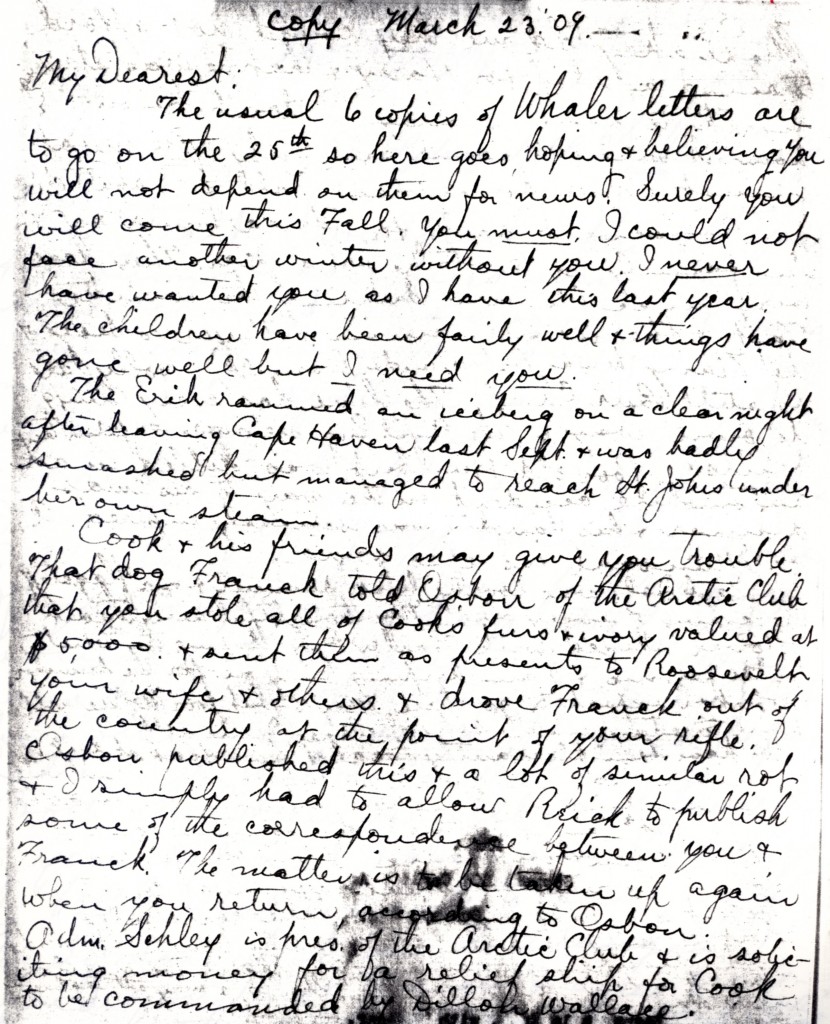 Copy March 23 '09.
My Dearest:
The usual 6 copies of Whaler letters are
to go on the 25th so here goes, hoping & believing you
will not depend on them for news. Surely you
will come this Fall. You must. I could not
face another winter without you. I never
have wanted you as I have this last year.
The children have been fairly well & things have
gone well but I need you.
The Erik rammed an iceberg on a clear night
after leaving Cape Haven last Sept. & was badly
smashed but managed to reach St. Johns under
her own steam.
Cook & his friends may give you trouble.
That dog Franck told Osbon of the Arctic Club
that you stole all of Cooks furs & ivory valued at
$5,000. & sent them as presents to Roosevelt
your wife & others & drove Franck out of
the country at the point of your rifle.
Osbon published this & a lot of similar rot
& I simply had to allow Reick to publish
some of the correspondence between you &
Franck. The matter is to be taken up again
when you return, according to Osbon.
Adm. Schley is pres. of the Arctic Club & is solic-
iting money for a relief ship for Cook
to be commanded by Dillon Wallace.